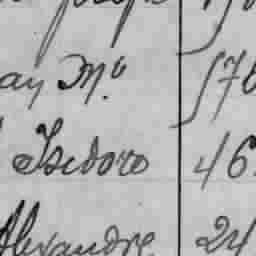 ay Mª 576
Isidoro 46
Alexandre 24